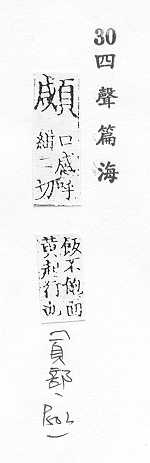 30四聲篇海
顑
口感呼
紺二切
飯不飽面
黃起行也
(頁部、